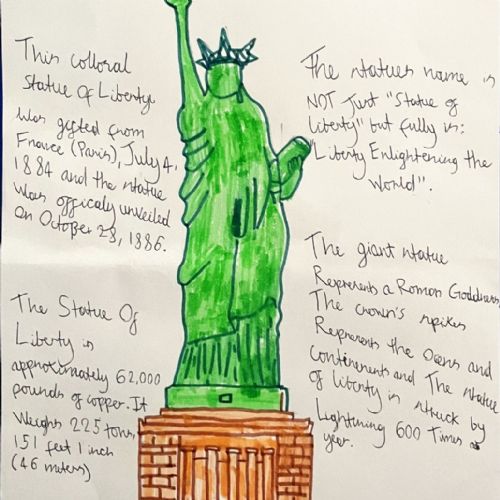 This collosal
Statue Of Liberty.
Was gifted from
France (Paris), July 4,
1884 and the statue
was officaly unveiled
on October 28, 1886.
The Statue Of
Liberty is
approximately 62,000
pounds of copper. It
Weighs 225 tons,
151 feet 1 inch
(46 meters)
The statues name is
NOT Just "Statue of
liberty" but fully is:
"Liberty Enlightening the
World".
The giant statue
Represents a Roman Goddness,
The crown's spikes
Represents the Ocens and
Continenents and The statue
of liberty is struck by
Lightening 600 Times a
year.